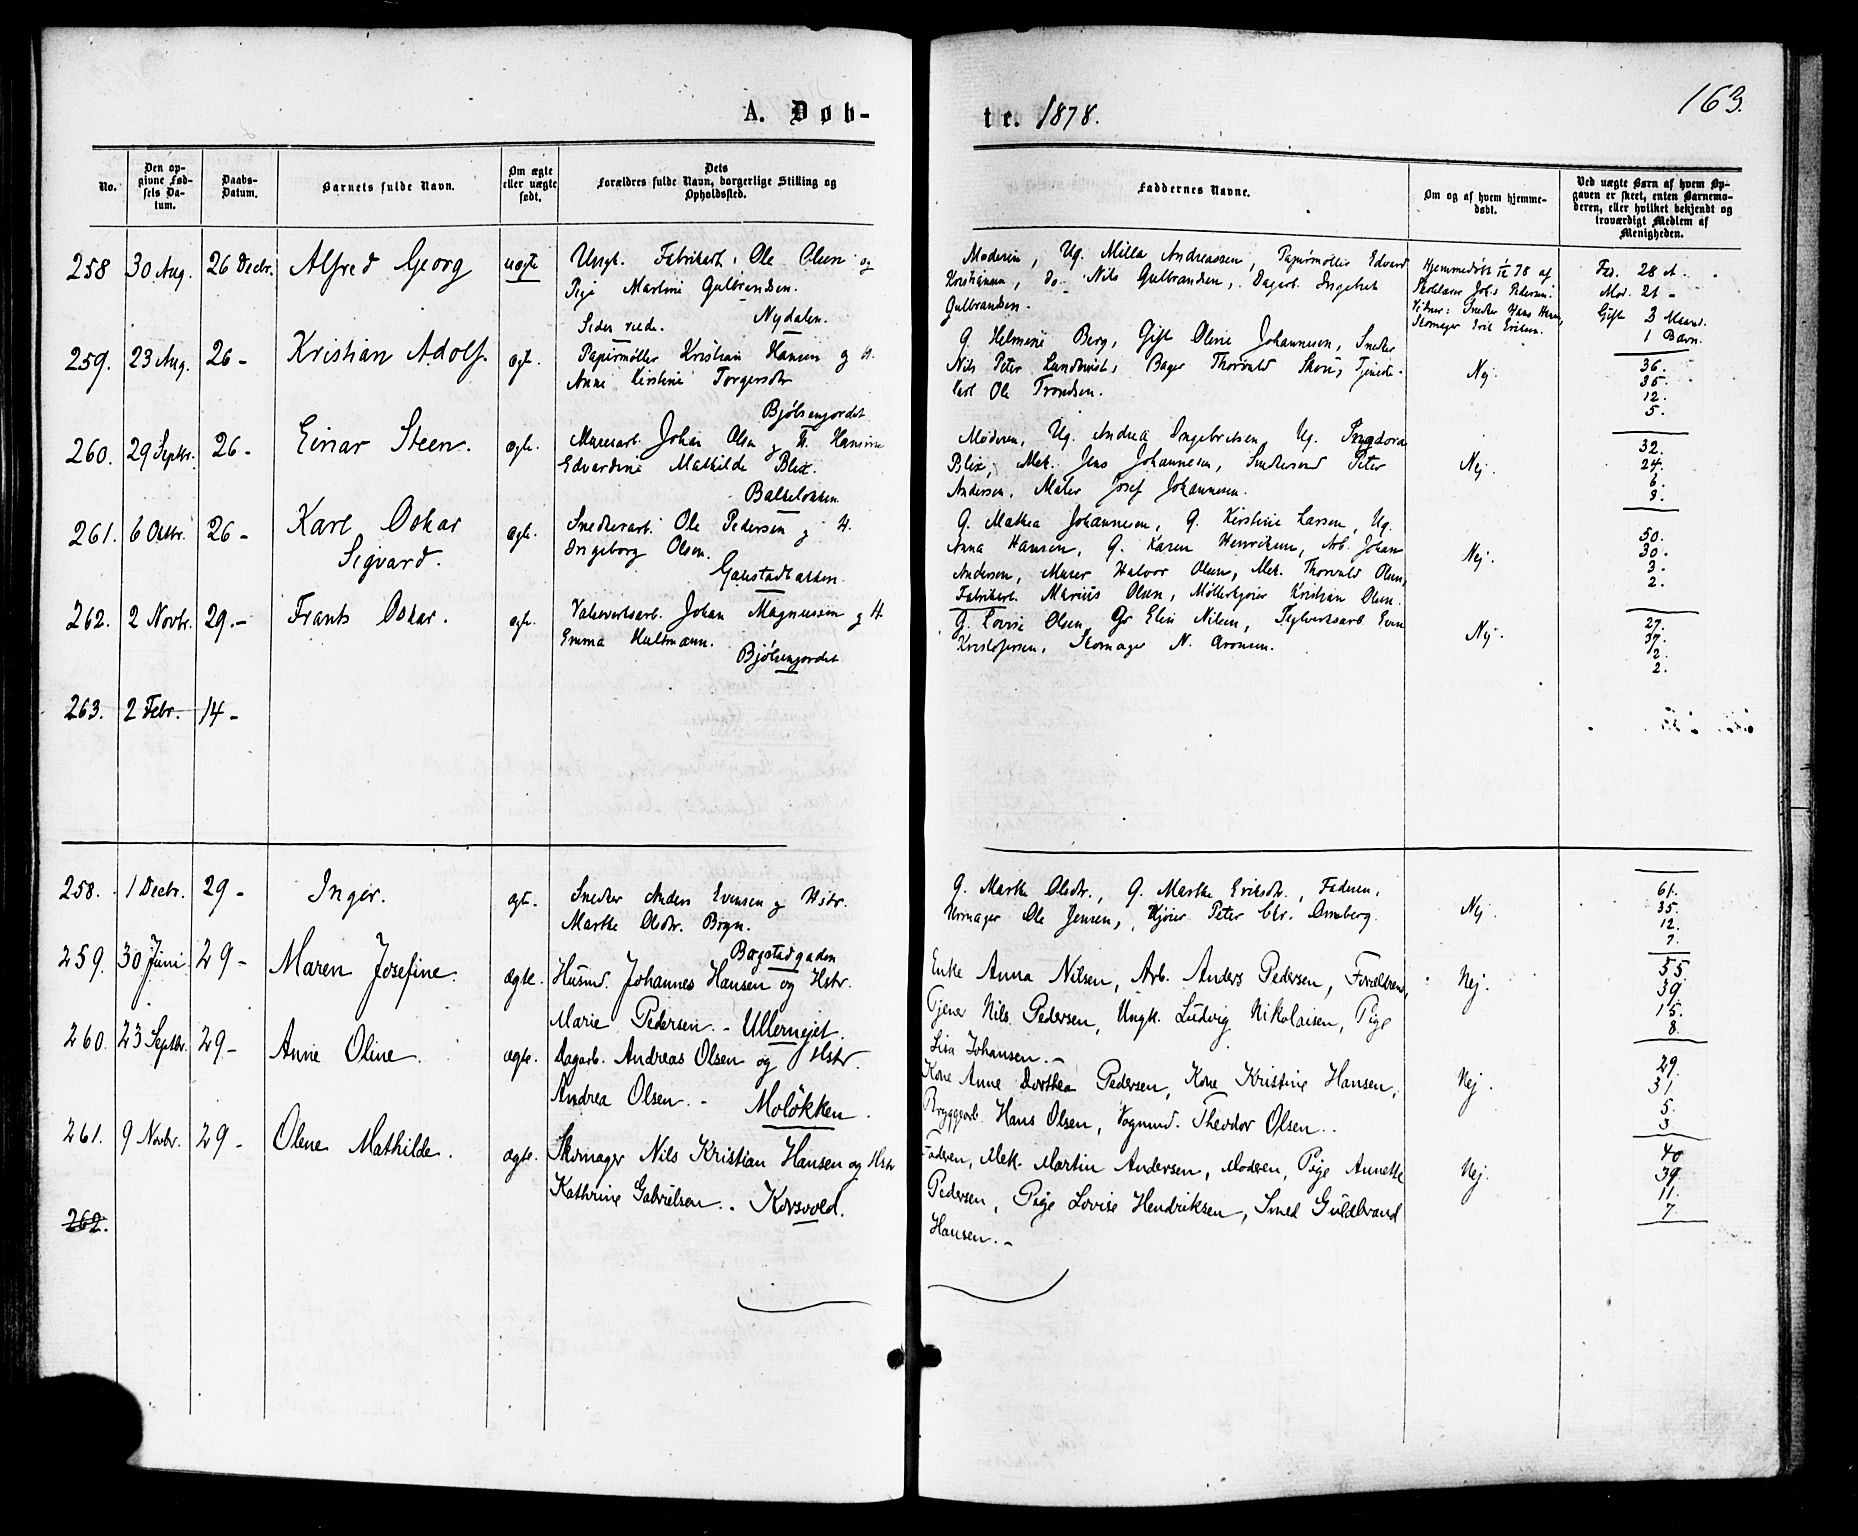 163.
A. Døb-
te. 1878.
No.
Den op-
givne Fød-
sels Da-
tum.
Daabs-
Datum.
Barnets fulde Navn.
Om ægte
eller uægte
født.
Dets
Forældres fulde Navn, borgerlige Stilling og
Opholdssted.
Faddernes Navne.
Om og af hvem hjemme-
døbt.
Ved uægte Børn af hvem Op-
gaven er skeet, enten Barnemo-
deren, eller hvilket bekjendt og
troværdigt Medlem af
Menigheden.
258 30 Aug. 26 Decbr. Alfred Georg uægte
Ungk. Fabrikarb. Ole Olsen og
Pige Martine Gulbrandsen.
Nydalen.
Moderen, Ug. Milla Andreassen, Papirmøller Edvard
Kristiansen, do. Nils Gulbrandsen, Dagarb. Ingebret
Gulbrandsen.
Hjemmedøbt 78 af
Skolelærer Joh.s Pedersen.
Vidner: Snedker Hans
Skomager Erik Eriksen.
Fad. 28 A.
Mod. 21 -
Gifte 3 Maand.
1 Barn.
259. 23 Aug. 26 - Kristian Adolf. ægt.
Papirmøller Kristian Hansen og H.
Anne Kirstine Torgersdtr
Bjølsenjordet
G. Helmine Berg, Gift Oline Johannesen, Snedker
Nils Peter Lundqvist, Bager Thorvald Skou, Tjeneste-
karl Ole Trondsen.
Nej.
36.
35.
12.
5.
260. 29 Septbr. 26 - Einar Steen. ægte.
Murerarb. Johan Olsen og H. Hansine
Edvardine Mathilde Blix.
Balkeløkken
Moderen, Ug. Andrea Ingebretsen, Ug. Ingdora
Blix, Mek. Jens Johannesen, Snedkersvend Peter
Andersen, Maler Josef Johannesen.
Nej.
32.
24.
6.
3.
261. 6 Octbr. 26 - Karl Oskar
Sigvard.
ægte.
Snedkerarb. Ole Pedersen og H.
Ingeborg Olsen.
Gaustadbakken.
G. Mathea Johannesen, G. Kirstine Larsen, Ug.
Anna Hansen, G. Karen Henriksen, Arb. Johan
Andersen, Murer Halvor Olsen, Mek. Thorvald Olsen,
Fabrikarb. Marius Olsen, Møllerkjører Kristian Olsen.
Nej.
50.
30.
3.
2.
262. 2 Novbr. 29. - Frants Oskar. ægte.
Valseverksarb. Johan Magnussen og H.
Emma Hultmann.
Bjølsenjordet
G. Lovise Olsen, Gr Elin Nilsen, Teglverksarb Even
Kristofersen, Skomager N. Aronsen.
Nej.
27.
37.
2.
2.
263. 2 Febr. 14 -
258. 1 Decbr. 29 - Inger. ægt.
Snedker Anders Evensen og Hstr.
Marthe Olsdtr. Bryn.
Bogstadgaden
G. Marthe Olsdtr., G. Marthe Eriksdtr., Faderen,
Urmager Ole Jensen, Kjører Peter Chr. Omberg.
Nej.
61.
35.
12.
7.
259. 30 Juni 29 - Maren Josefine. ægte.
Husmd. Johannes Hansen og Hstr.
Marie Pedersen. - Ullernejet.
Enke Anna Nilsen, Arb. Anders Pedersen, Forældrene,
Tjener Nils Pedersen, Ungk. Ludvig Nikolaisen, Pige
Lisa Johansen. -
Nej.
55.
39.
15.
8.
260. 23 Septbr. 29 - Anne Oline. ægte.
Dagarb. Andreas Olsen og Hstr.
Andrea Olsen. - Moløkken.
Kone Anne Dorthea Pedersen, Kone Kristine Hansen,
Bryggearb. Hans Olsen, Vognmd. Theodor Olsen.
Nej.
29.
31.
5.
3.
261. 9 Novbr. 29 - Olene Mathilde. ægte.
Skomager Nils Kristian Hansen og Hstr
Kathrine Gabrielsen.. Korsvold.
Faderen, Mek. Martin Andersen, Moderen, Pige Annette
Pedersen, Pige Lovise Hendriksen, Smed Guldbrand
Hansen. -
Nej.
40
39.
11.
7.
262.